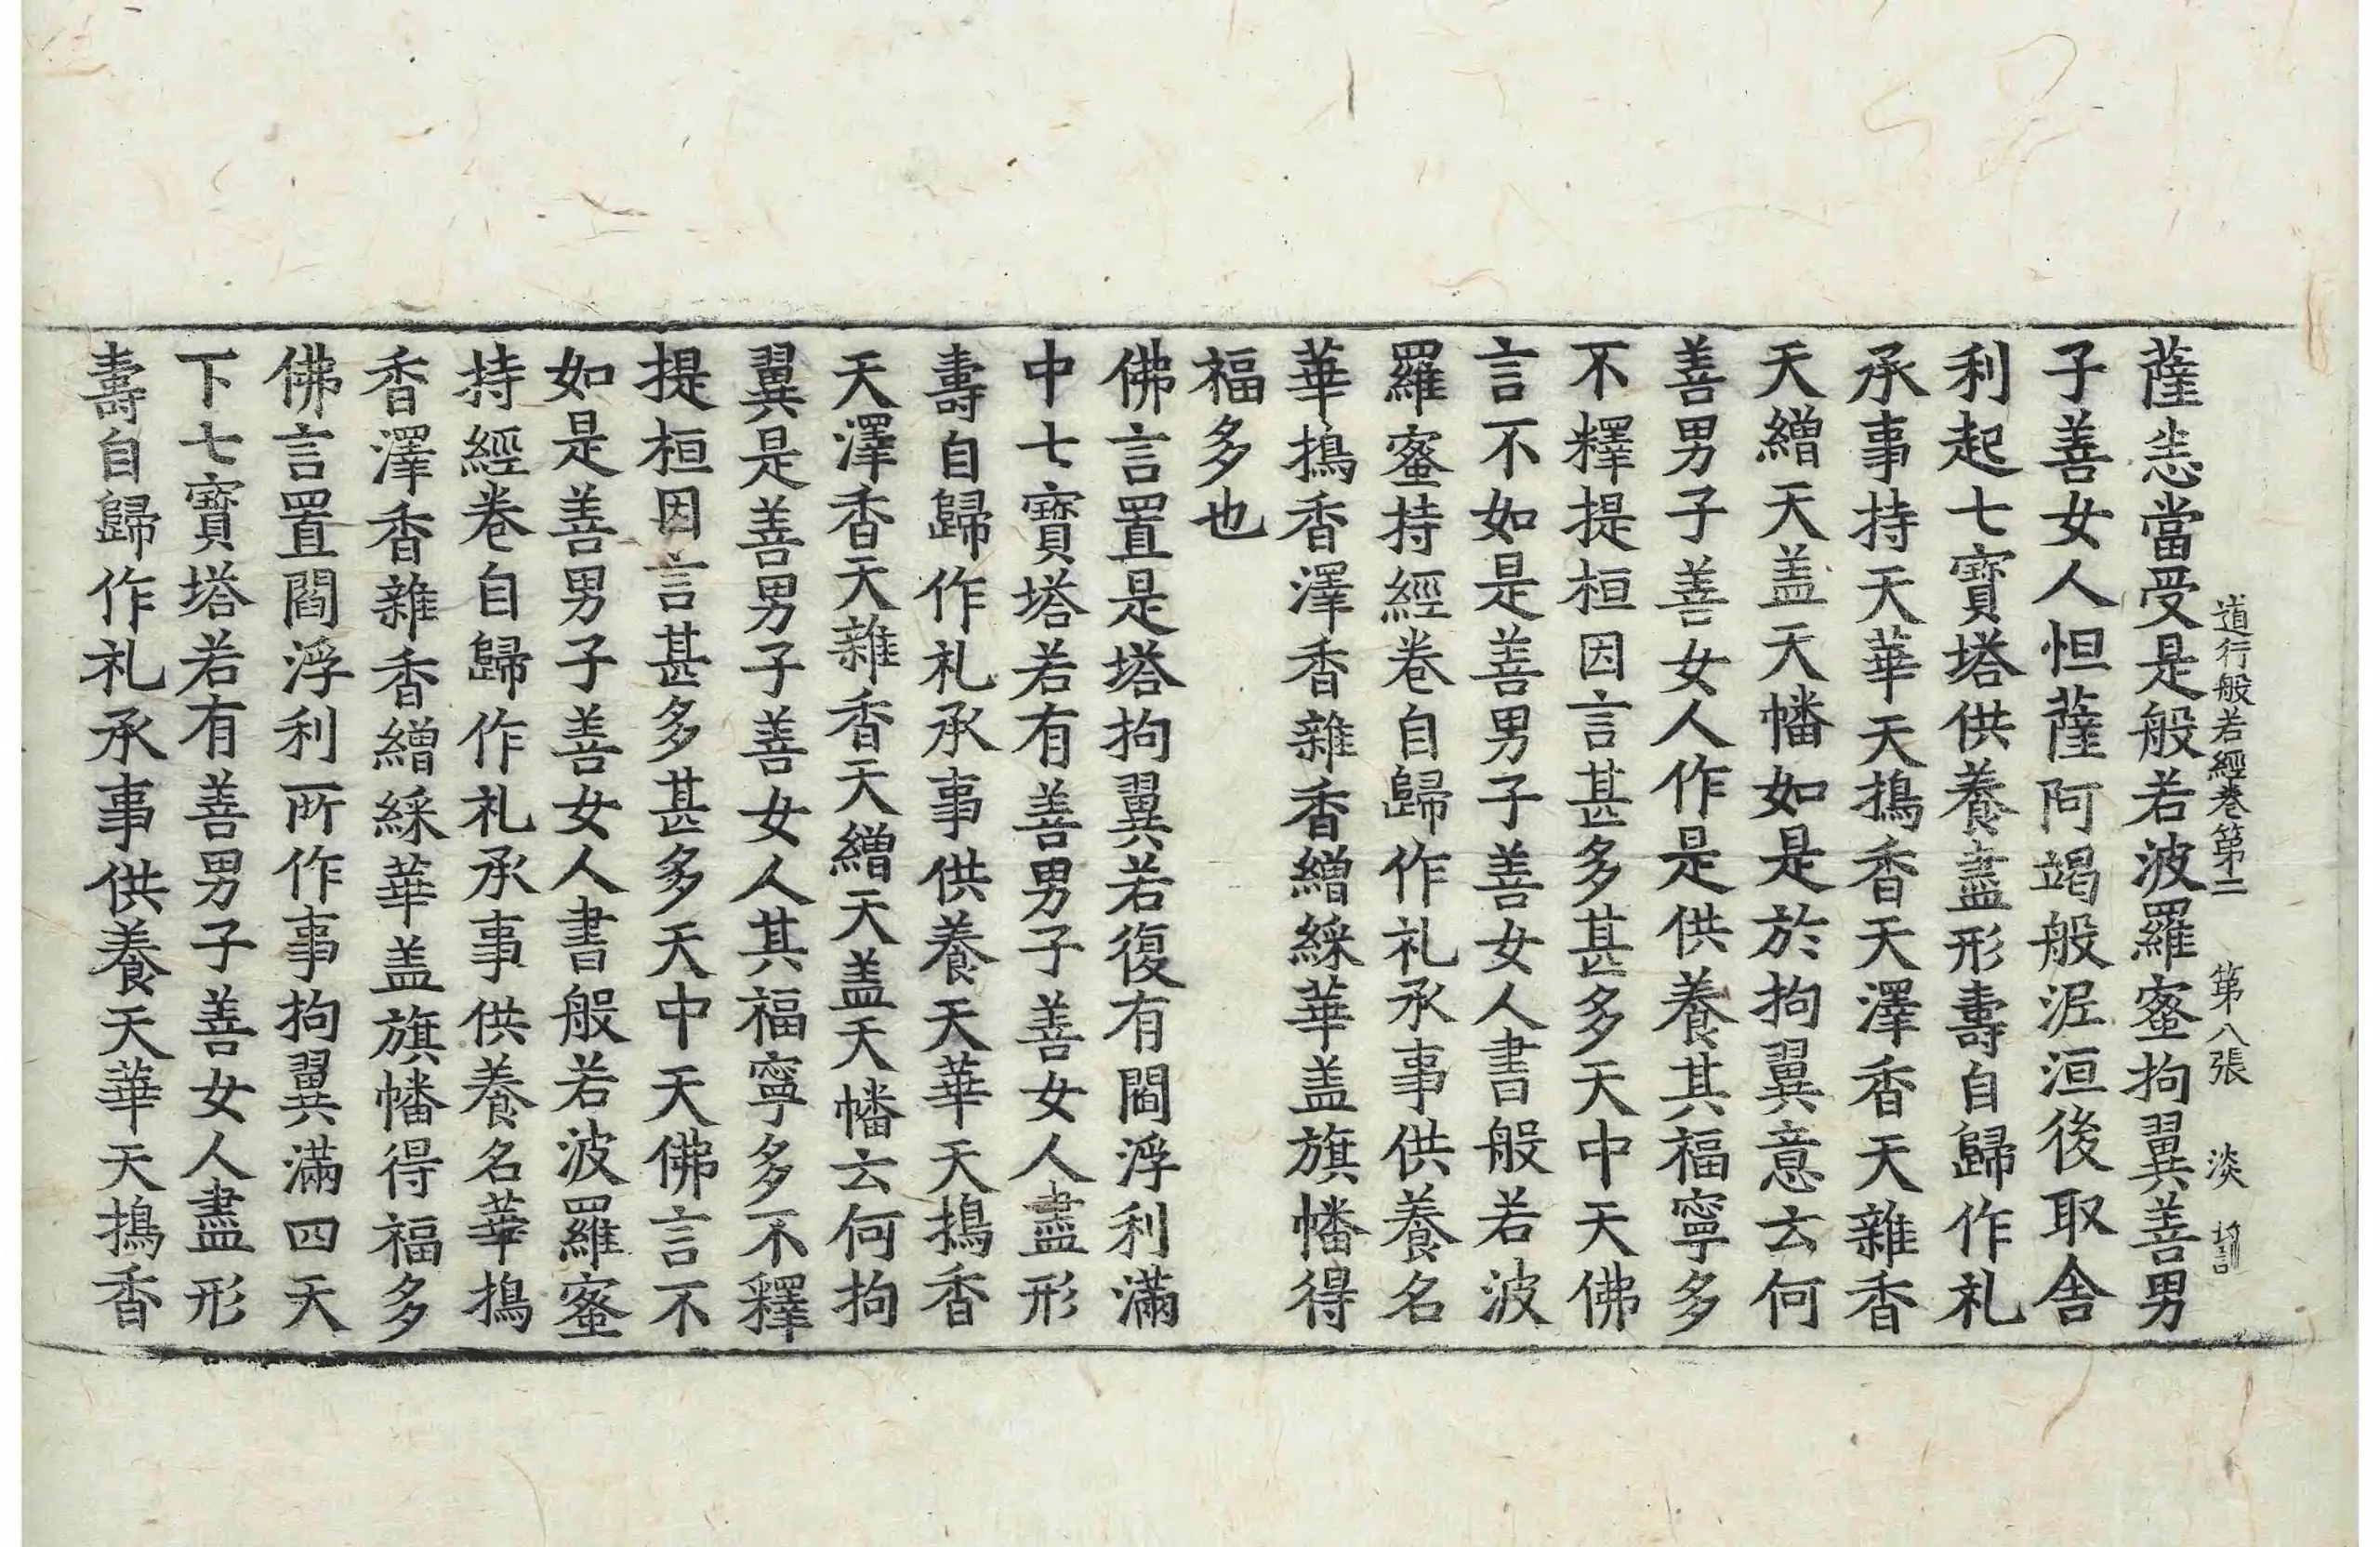 道行般若經卷第二 第八張 淡
薩恚當受是般若波羅蜜拘翼善男
子善女人怛薩阿竭般泥洹後取舍
利起七寶塔供養盡形壽自歸作礼
承事持天華天搗香天澤香天雜香
天繒天盖天幡如是於拘翼意云何
善男子善女人作是供養其福寧多
不釋提桓因言甚多甚多天中天佛
言不如是善男子善女人書般若波
羅蜜持經卷自歸作礼承事供養名
華搗香澤香雜香繒綵華盖旗幡得
福多也
佛言置是塔拘翼若復有閻浮利滿
中七寶塔若有善男子善女人盡形
壽自歸作礼承事供養天華天搗香
天澤香天雜香天繒天盖天幡云何拘
翼是善男子善女人其福寧多不釋
提桓因言甚多甚多天中天佛言不
如是善男子善女人書般若波羅蜜
持經卷自歸作礼承事供養名華搗
香澤香雜香繒綵華盖旗幡得福多
佛言置閻浮利所作事拘翼滿四天
下七寶塔若有善男子善女人盡形
壽自歸作礼承事供養天華天搗香